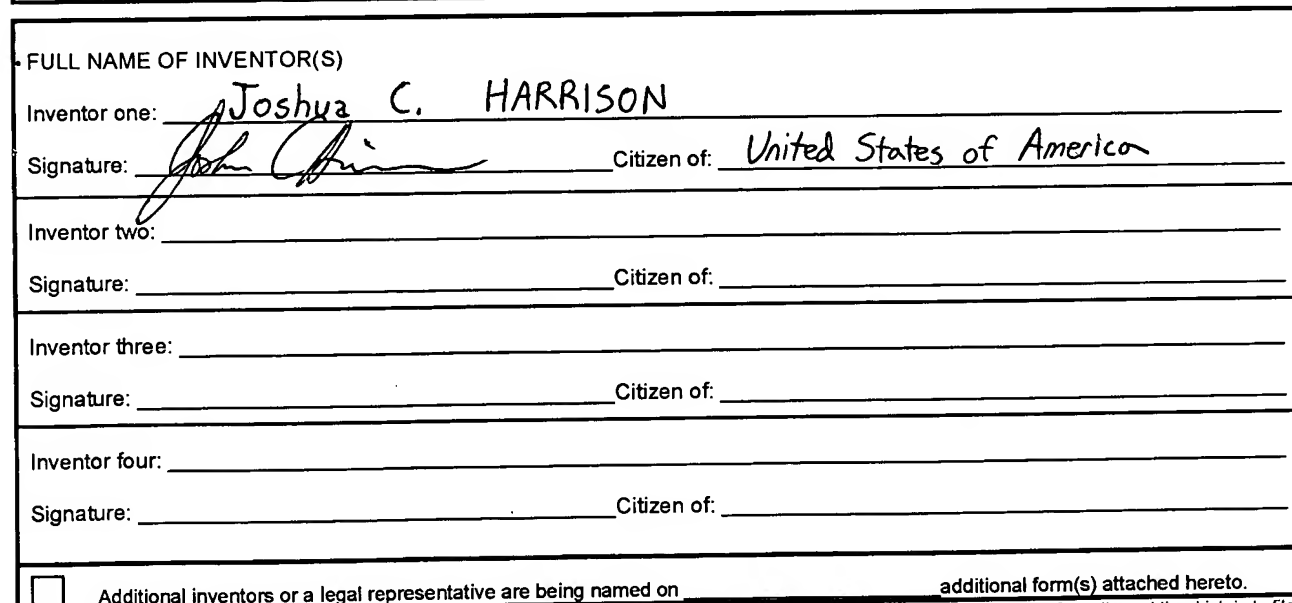 FULL NAME OF INVENTOR(S)
Inventor one: Joshua C. HARRISON
Signature: Citizen of: United States of America
Inventor two:
Signature: Citizen of:
Inventor three:
Signature: Citizen of:
Inventor four:
Signature: Citizen of:
Additional inventors or a legal representative are being named on additional form(s) attached hereto.